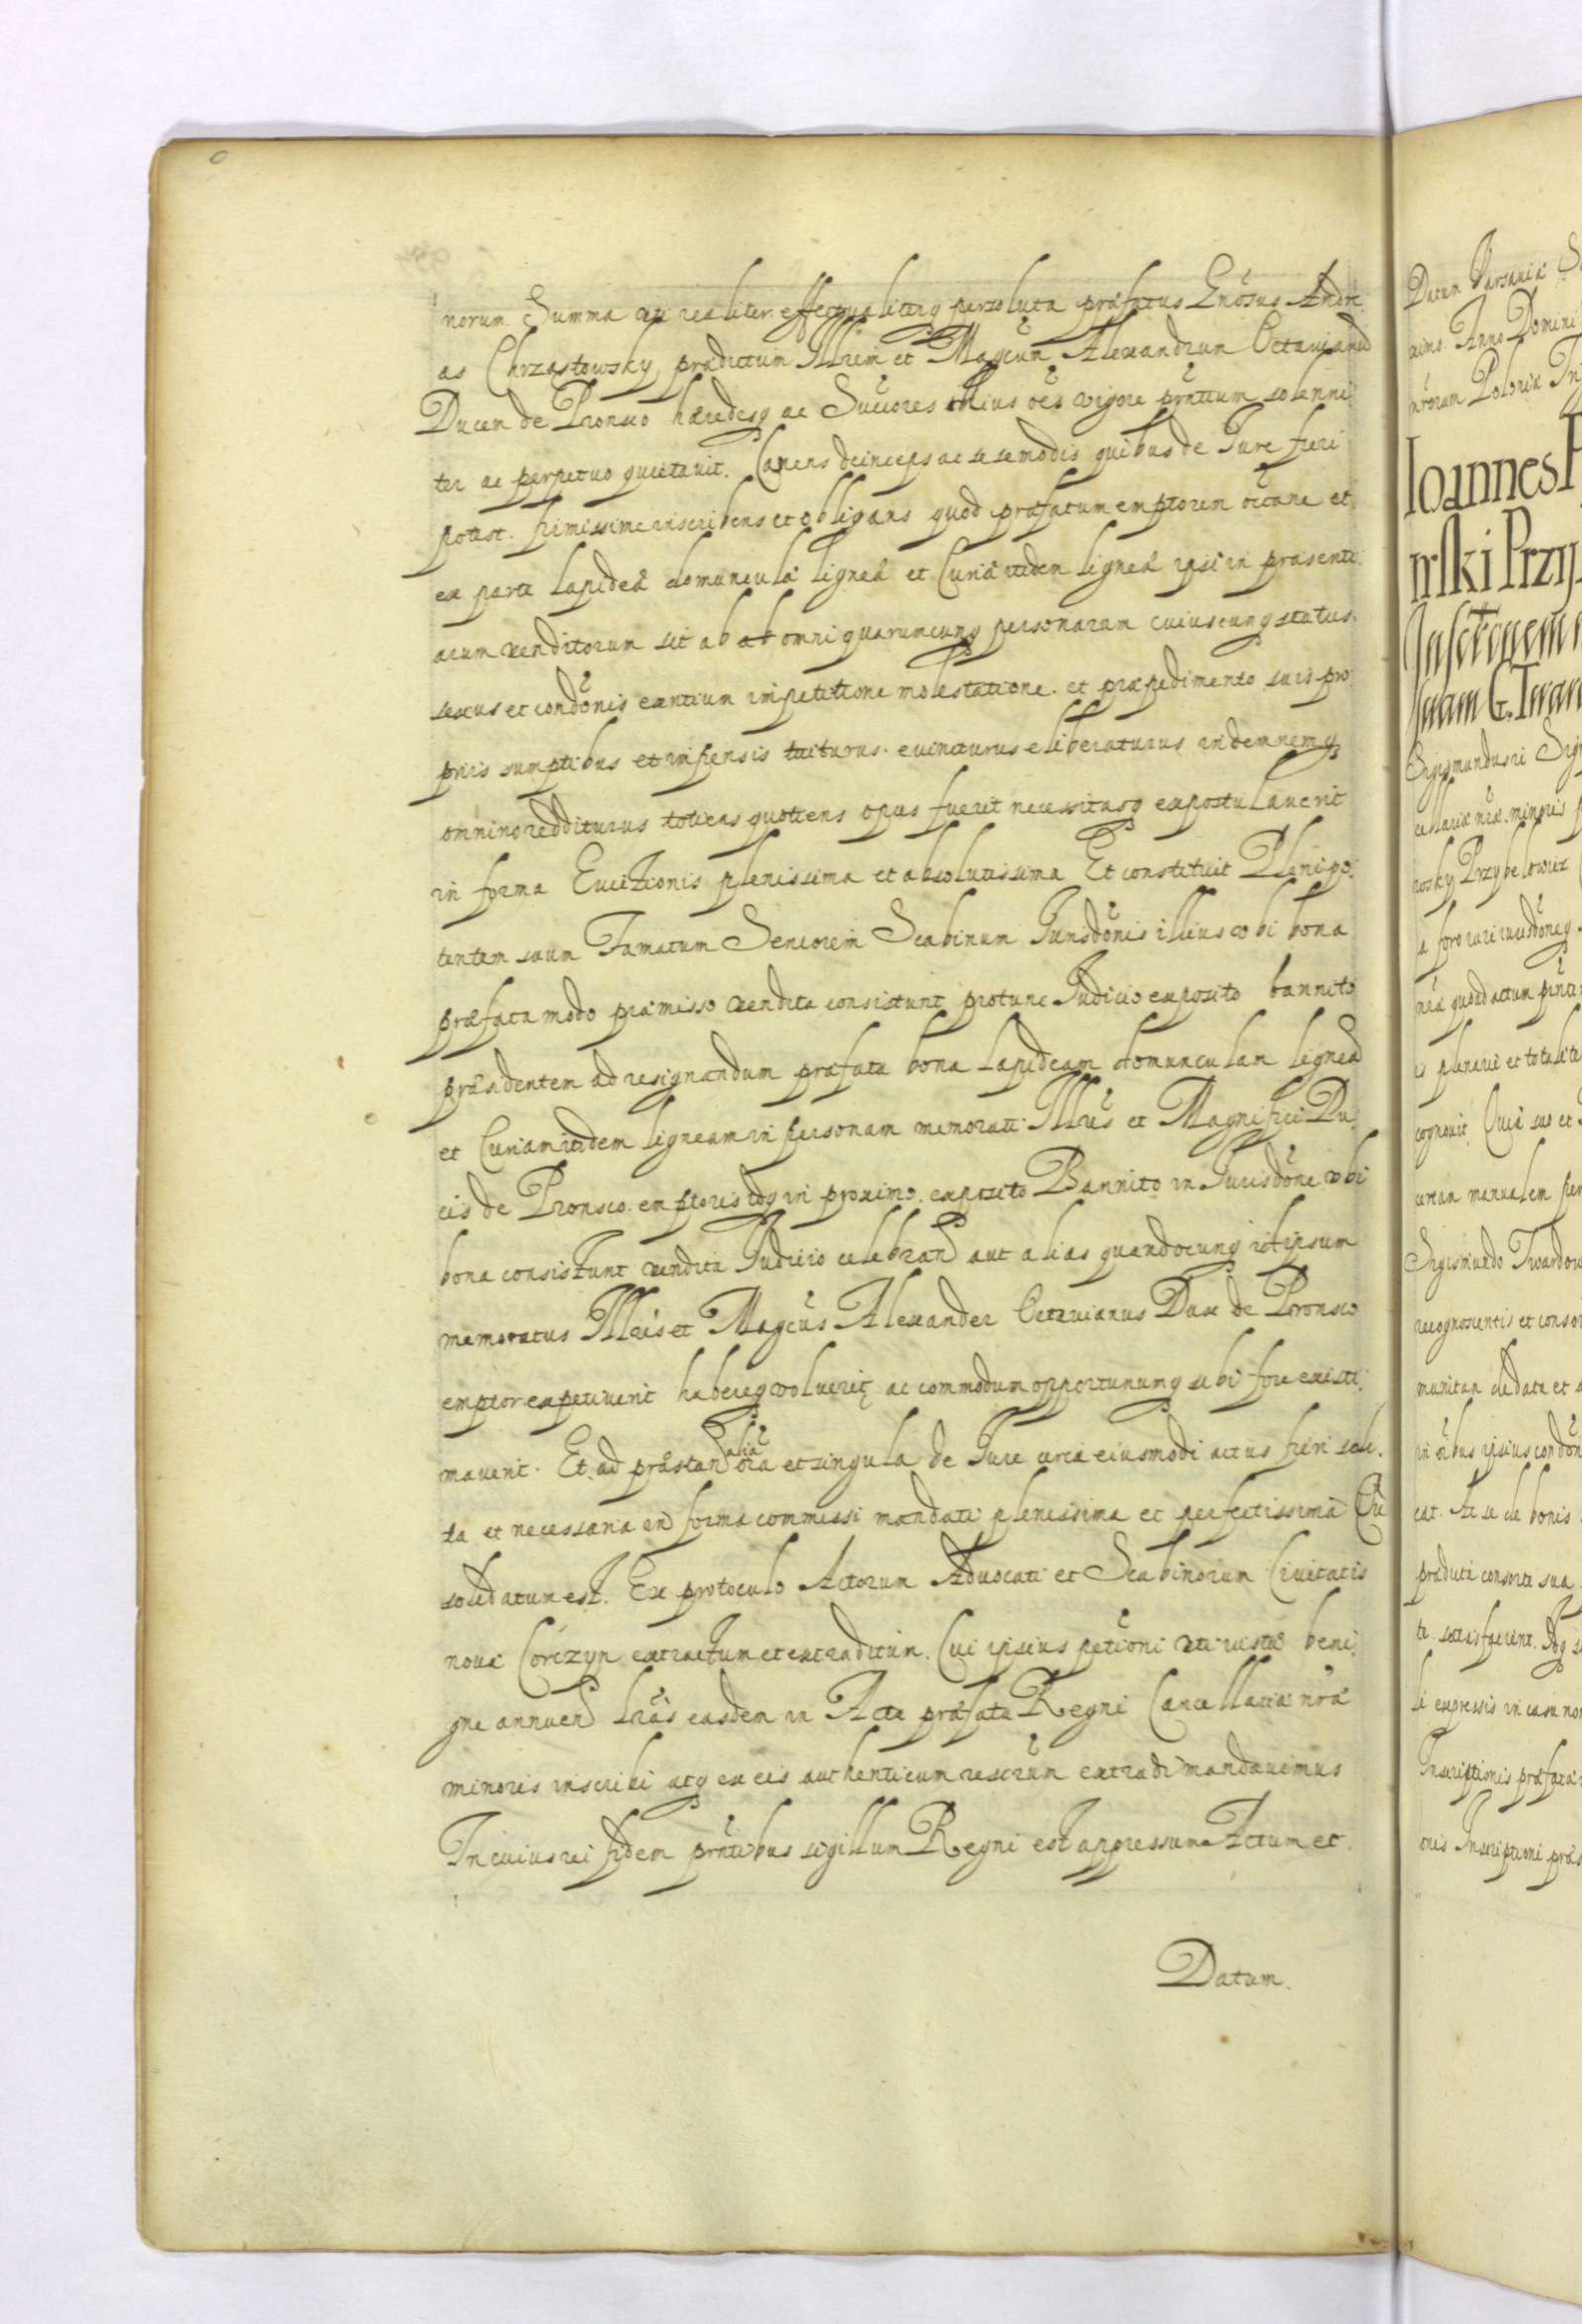 norum Summa uti realiter effectualiterq persoluta præfatus Gnosus Andre
as Chrząstowsky prædictum Illrem et Magcum Alexandrum Octavianu
Ducem de Pronsco hæredesq ac Succores illius oes vigore pnttium solenni
ter ac perpetuo quietavit. Cavens deinceps ac se semodis quibus de Jure fieri
potest. firmissime inscribens et obligans quod præfatum emptorem occane et
ex parte lapideæ domunculæ ligneæ et Curiæ itidem ligneæ ipsi in præsenti
arum venditorum sit ab ab omni quarumcunq personarum cuiuscunq status
sexus et condonis exntium impetitione molestatione et præpedimento suis pro
priis sumptibus et impensis tuiturus. evincturus eliberaturus indemnemq
omnino redditurus totiens quotiens opus fuerit necessitasq expostulaverit
in forma Evictionis plenissima et absolutissima Et constituit Plenipo
tentem suum Famatum Seniorem Scabinum Jurisdonis illius vbi bona
præfata modo præmisso vendita consistunt protunc Judicio exposito bannito
præsidentem ad resignandum præfata bona lapideam domunculam ligneā
et Curiam itidem ligneam in personam memorati Illris et Magnifici Du
cis de Pronsco. emptoris idq in proximo. exposito Bannito in Jurisdone vbi
bona consistunt vendita Judicio celebrand aut alias quandocunq idipsum
memoratus Illris et Magcus Alexander Octavianus Dux de Pronsco
emptor expetiverit habereq voluerit ac commodum opportunumq sibi fore existi
maverit. Et ad præstand alia oia et singula de Jure circa eiusmodi actus fieri soli
ta et necessaria in forma commissi mandati plenissima et perfectissima Cū
solidatum est. Ex protoculo Actorum Advocati et Scabinorum Civitatis
novæ Corczyn extractum et extraditum. Cui ipsius petioni uti iustæ beni
gne annuend lras easdem in Acta præfata Regni Cancellariæ nræ
minoris inscribi atq ex eis authenticum rescrum extradi mandavimus
In cuius rei fidem pntibus sigillum Regni est appressum Actum et
Datum.
Datum Varsaviæ
ximo. Anno Domini
nrorum Poloniæ
Ioannes
rski Przy
Inscrionem
suam G. Twar
Sigismundus
cellariæ nræ. minoris
rosky Przybelowicz
a foro iurisdoneq
nea quoad actum pnti
is plenarie et totali
cognovit Quia sua et
certam manualem
Sigismundo Twardow
recognoscentis et conso
munitam dedata et
in oibus ipsius condon
eat. Ac se de bonis
prædicta consorte sua
te satisfecerint. Idq
li expressis in casu non
Inscriptionis præfatæ
onis Inscriptioni præs